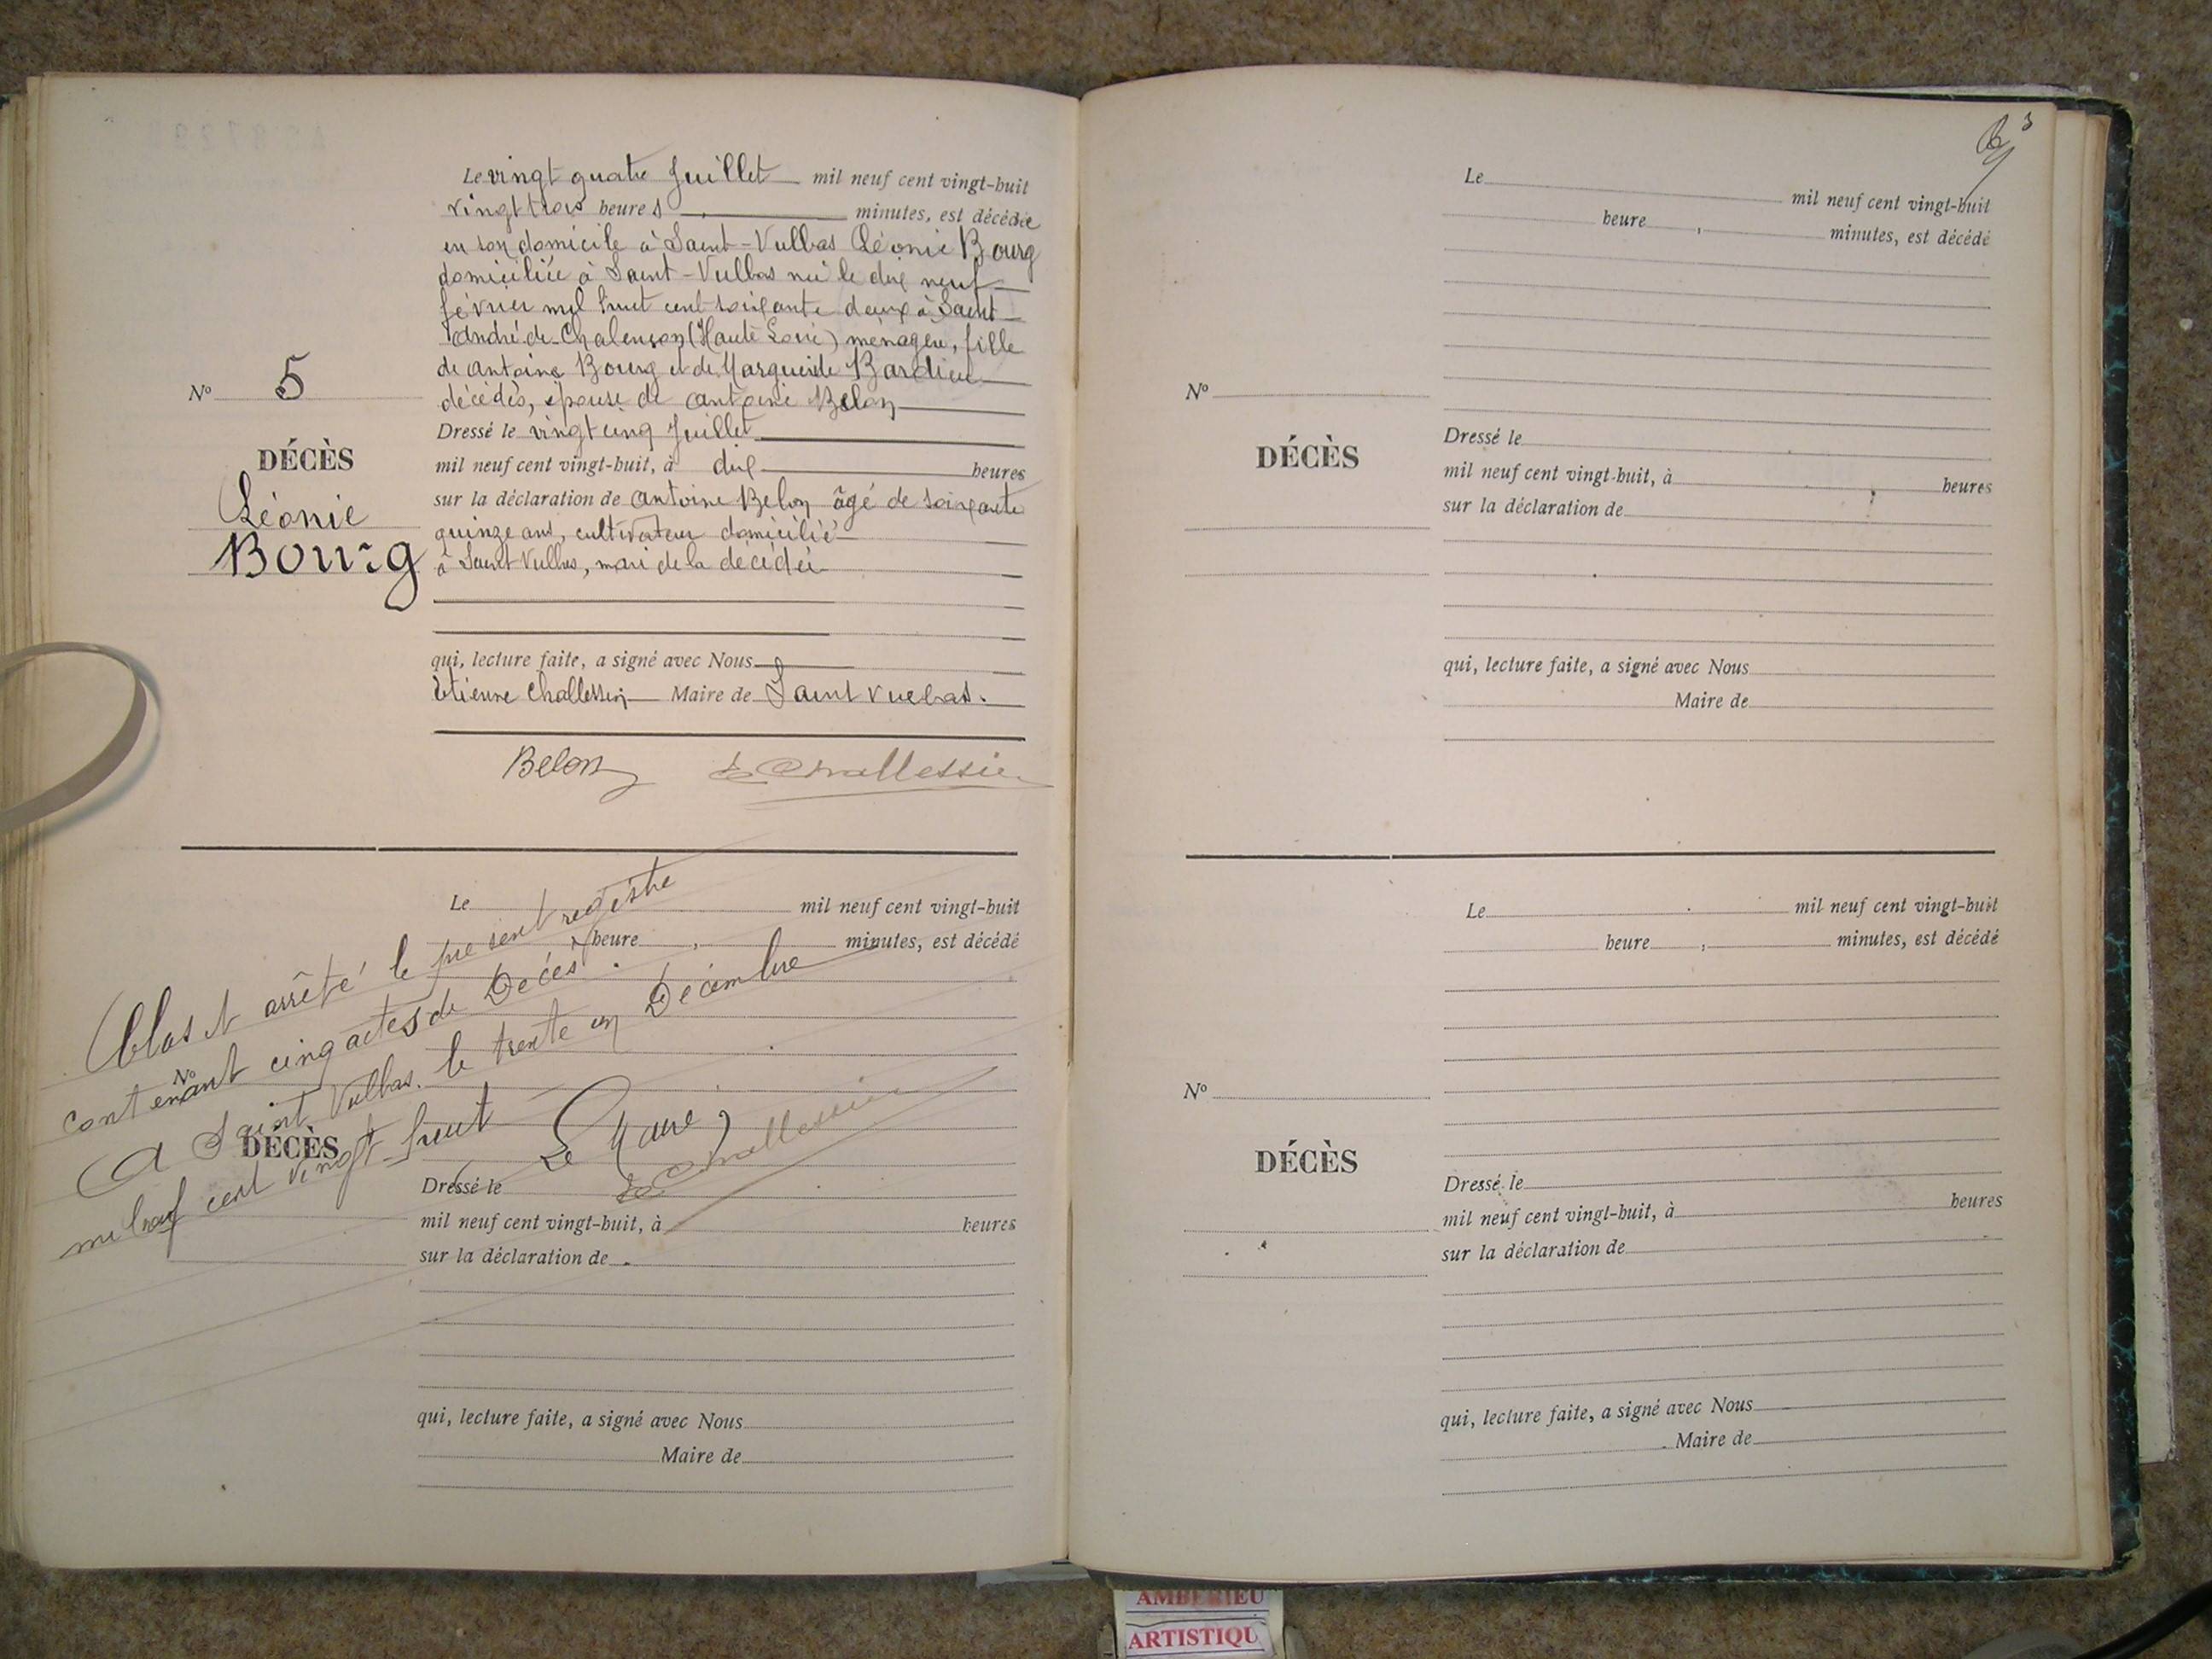 Le vingt quatre Juillet mil neuf cent vingt-huit
vingt trois heures , minutes, est décédée
en son domicile à Saint-Vulbas Léonie Bourg
domiciliée à Saint-Vulbas née le dix neuf
février mil huit cent soixante deux à Saint
André de Chalençon (Haute Loire) ménagère, fille
de Antoine Bourg et de Marguerite Bardieu
décédés, épouse de Antoine Belon
Dressé le vingt cinq Juillet
mil neuf cent vingt-huit, à dix heures
sur la déclaration de Antoine Belon âgé de soixante
quinze ans, cultivateur domicilié
à Saint Vulbas, mari de la décédée
qui, lecture faite, a signé avec Nous
Etienne Challessin Maire de Saint Vulbas.
Belon E Challessin
No 5
DÉCÈS
Léonie
Bourg
Le mil neuf cent vingt-huit
heure , minutes, est décédé
Clos et arrêté le présent registre
contenant cinq actes de Décès.
A Saint Vulbas. le trente un Décembre
mil neuf cent vingt huit
Le Maire,
E Challessin
No
DÉCÈS
Dressé le
mil neuf cent vingt-huit, à heures
sur la déclaration de
qui, lecture faite, a signé avec Nous
Maire de
3
Le mil neuf cent vingt-huit
heure , minutes, est décédé
No
DÉCÈS
Dressé le
mil neuf cent vingt-huit, à heures
sur la déclaration de
qui, lecture faite, a signé avec Nous
Maire de
Le mil neuf cent vingt-huit
heure , minutes, est décédé
No
DÉCÈS
Dressé le
mil neuf cent vingt-huit, à heures
sur la déclaration de
qui, lecture faite, a signé avec Nous
Maire de
AMBERIEU
ARTISTIQU